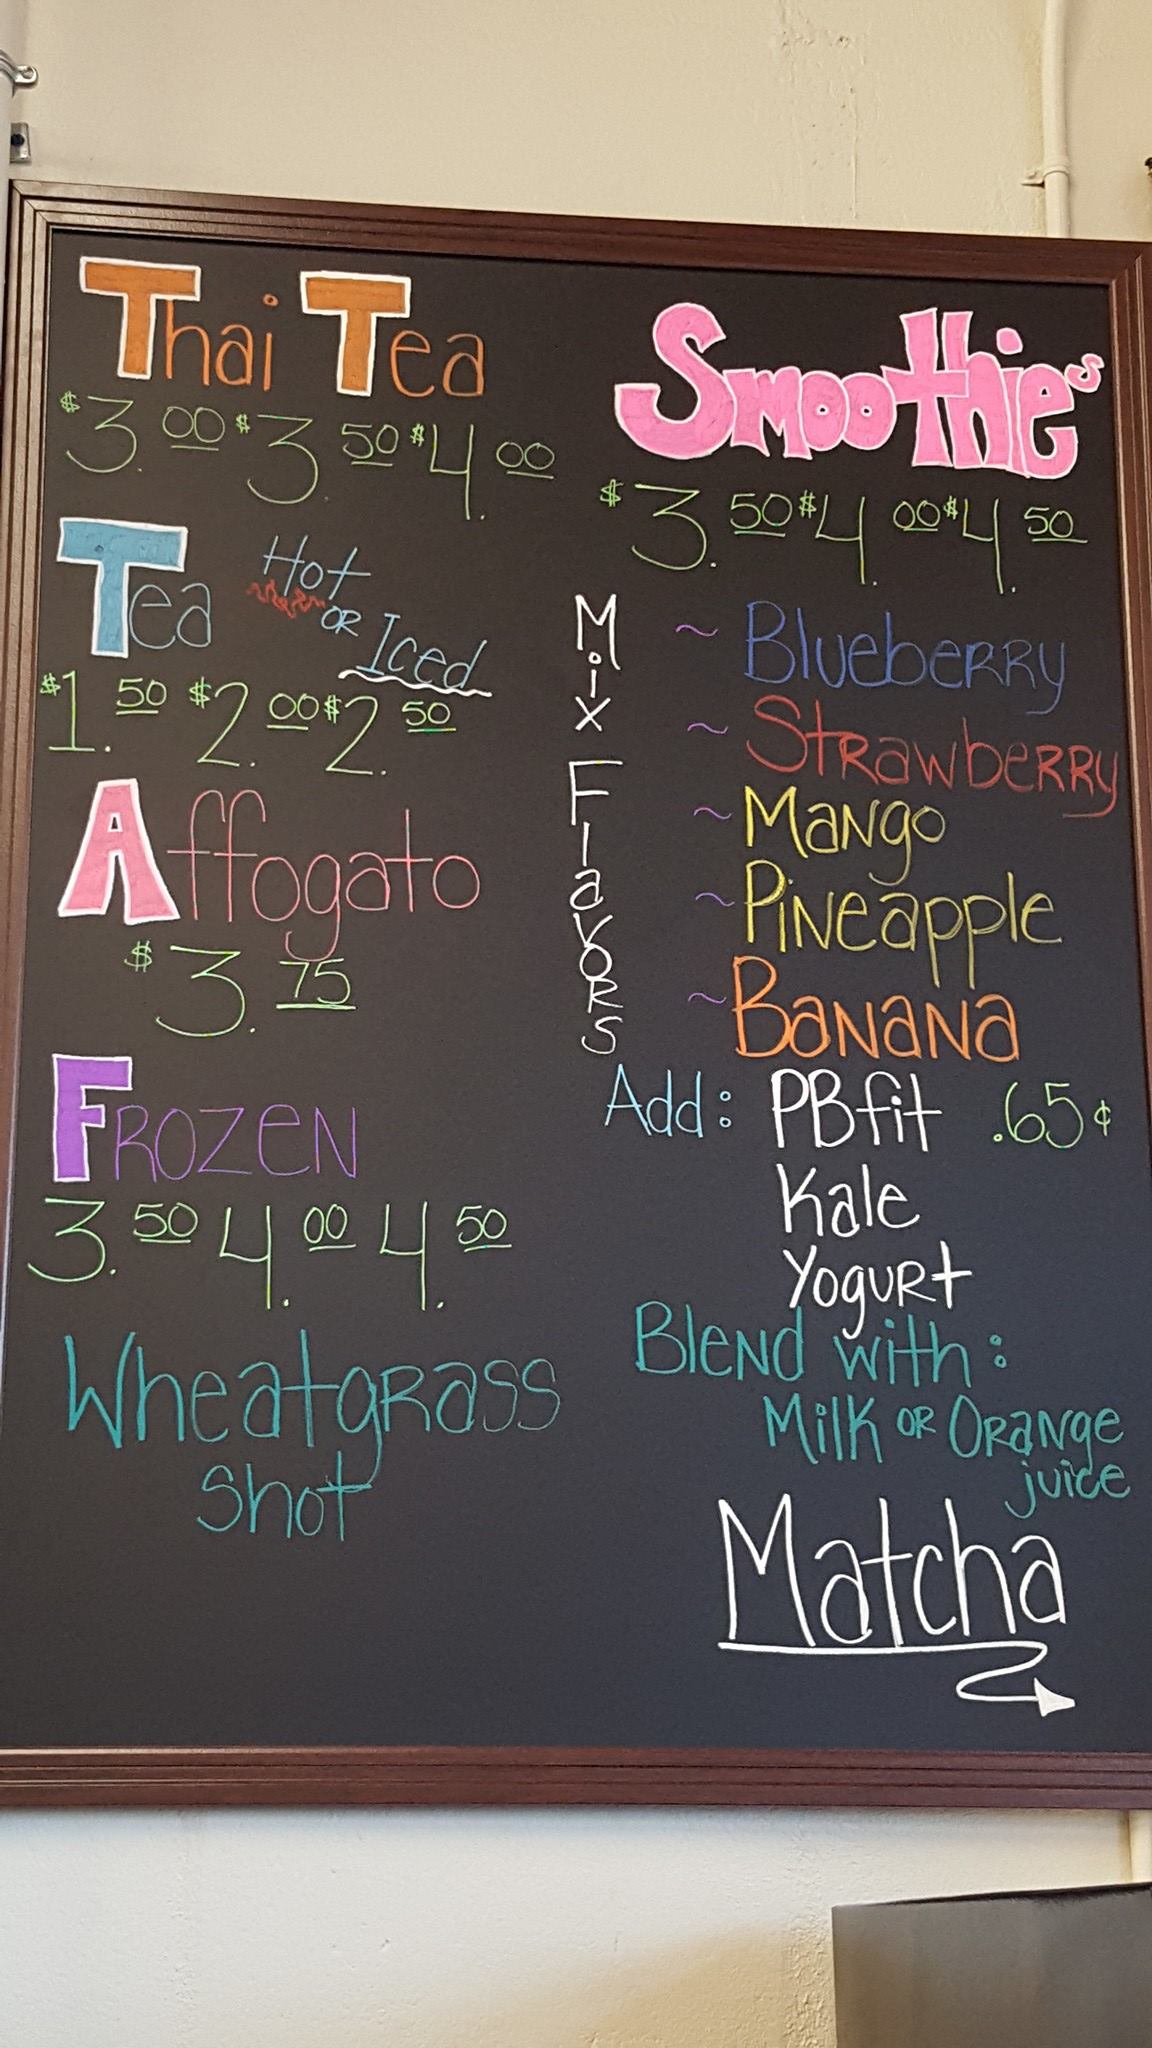 Thai Tea
$3.00 $3.50 $4.00
Tea Hot OR Iced
$1.50 $2.00 $2.50
Affogato
$3.75
FROZEN
3.50 4.00 4.50
Wheatgrass
Shot
Smoothies
$3.50 $4.00 $4.50
Mix Flavors
~ Blueberry
~ Strawberry
~ Mango
~ Pineapple
~ Banana
Add: PBfit .65¢
Kale
Yogurt
Blend with:
Milk OR Orange
juice
Matcha